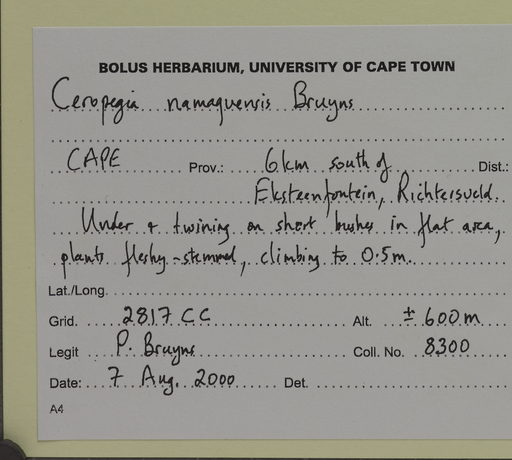 BOLUS HERBARIUM, UNIVERSITY OF CAPE TOWN
Ceropegia namaquensis Bruyns
CAPE Prov.: 6km south of Dist.:
Eksteenfontein, Richtersveld.
Under & twining on short bushes in flat area,
plants fleshy-stemmed, climbing to 0.5m.
Lat./Long.
Grid. 2817 CC Alt. ± 600m
Legit P. Bruyns Coll. No. 8300
Date: 7 Aug. 2000 Det.
A4